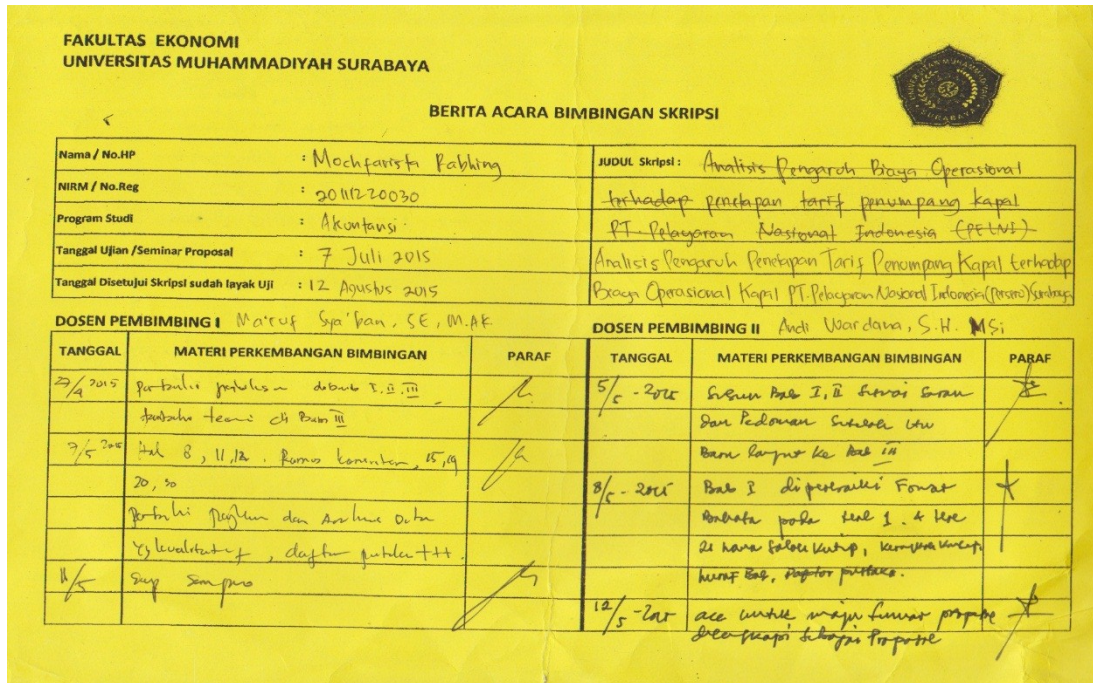 FAKULTAS EKONOMI
UNIVERSITAS MUHAMMADIYAH SURABAYA
BERITA ACARA BIMBINGAN SKRIPSI
Nama / No.HP : Mochfarista Rabhing
NIRM / No.Reg : 20111220030
Program Studi : Akuntansi
Tanggal Ujian /Seminar Proposal : 7 Juli 2015
Tanggal Disetujui Skripsi sudah layak Uji : 12 Agustus 2015
JUDUL Skripsi : Analisis Pengaruh Biaya Operasional
terhadap penetapan tarif penumpang kapal
PT. Pelayaran Nasional Indonesia (PELNI)
Analisis Pengaruh Penetapan Tarif Penumpang Kapal terhadap
Biaya Operasional Kapal PT. Pelayaran Nasional Indonesia (Persero) Surabaya
DOSEN PEMBIMBING I Ma'ruf Sya'ban, SE, M.AK
TANGGAL MATERI PERKEMBANGAN BIMBINGAN PARAF
2015 I, II, III
di Bab III
7/5 2015 Hal 8, 11, 12. Rumus 15, 19
20, 30
dan Data
yg kualitatif, daftar pustaka +++
11/5 Siap Sempro
DOSEN PEMBIMBING II Andi Wardana, S.H. MSi
TANGGAL MATERI PERKEMBANGAN BIMBINGAN PARAF
5/5 - 2015 Susun Bab I, II Sesuai Saran
dan Pedoman Setelah itu
Baru lanjut ke Bab III
8/5 - 2015 Bab I diperbaiki
pada hal 1.
huruf Bab, Daptor pustaka.
12/5 - 2015 acc untuk maju